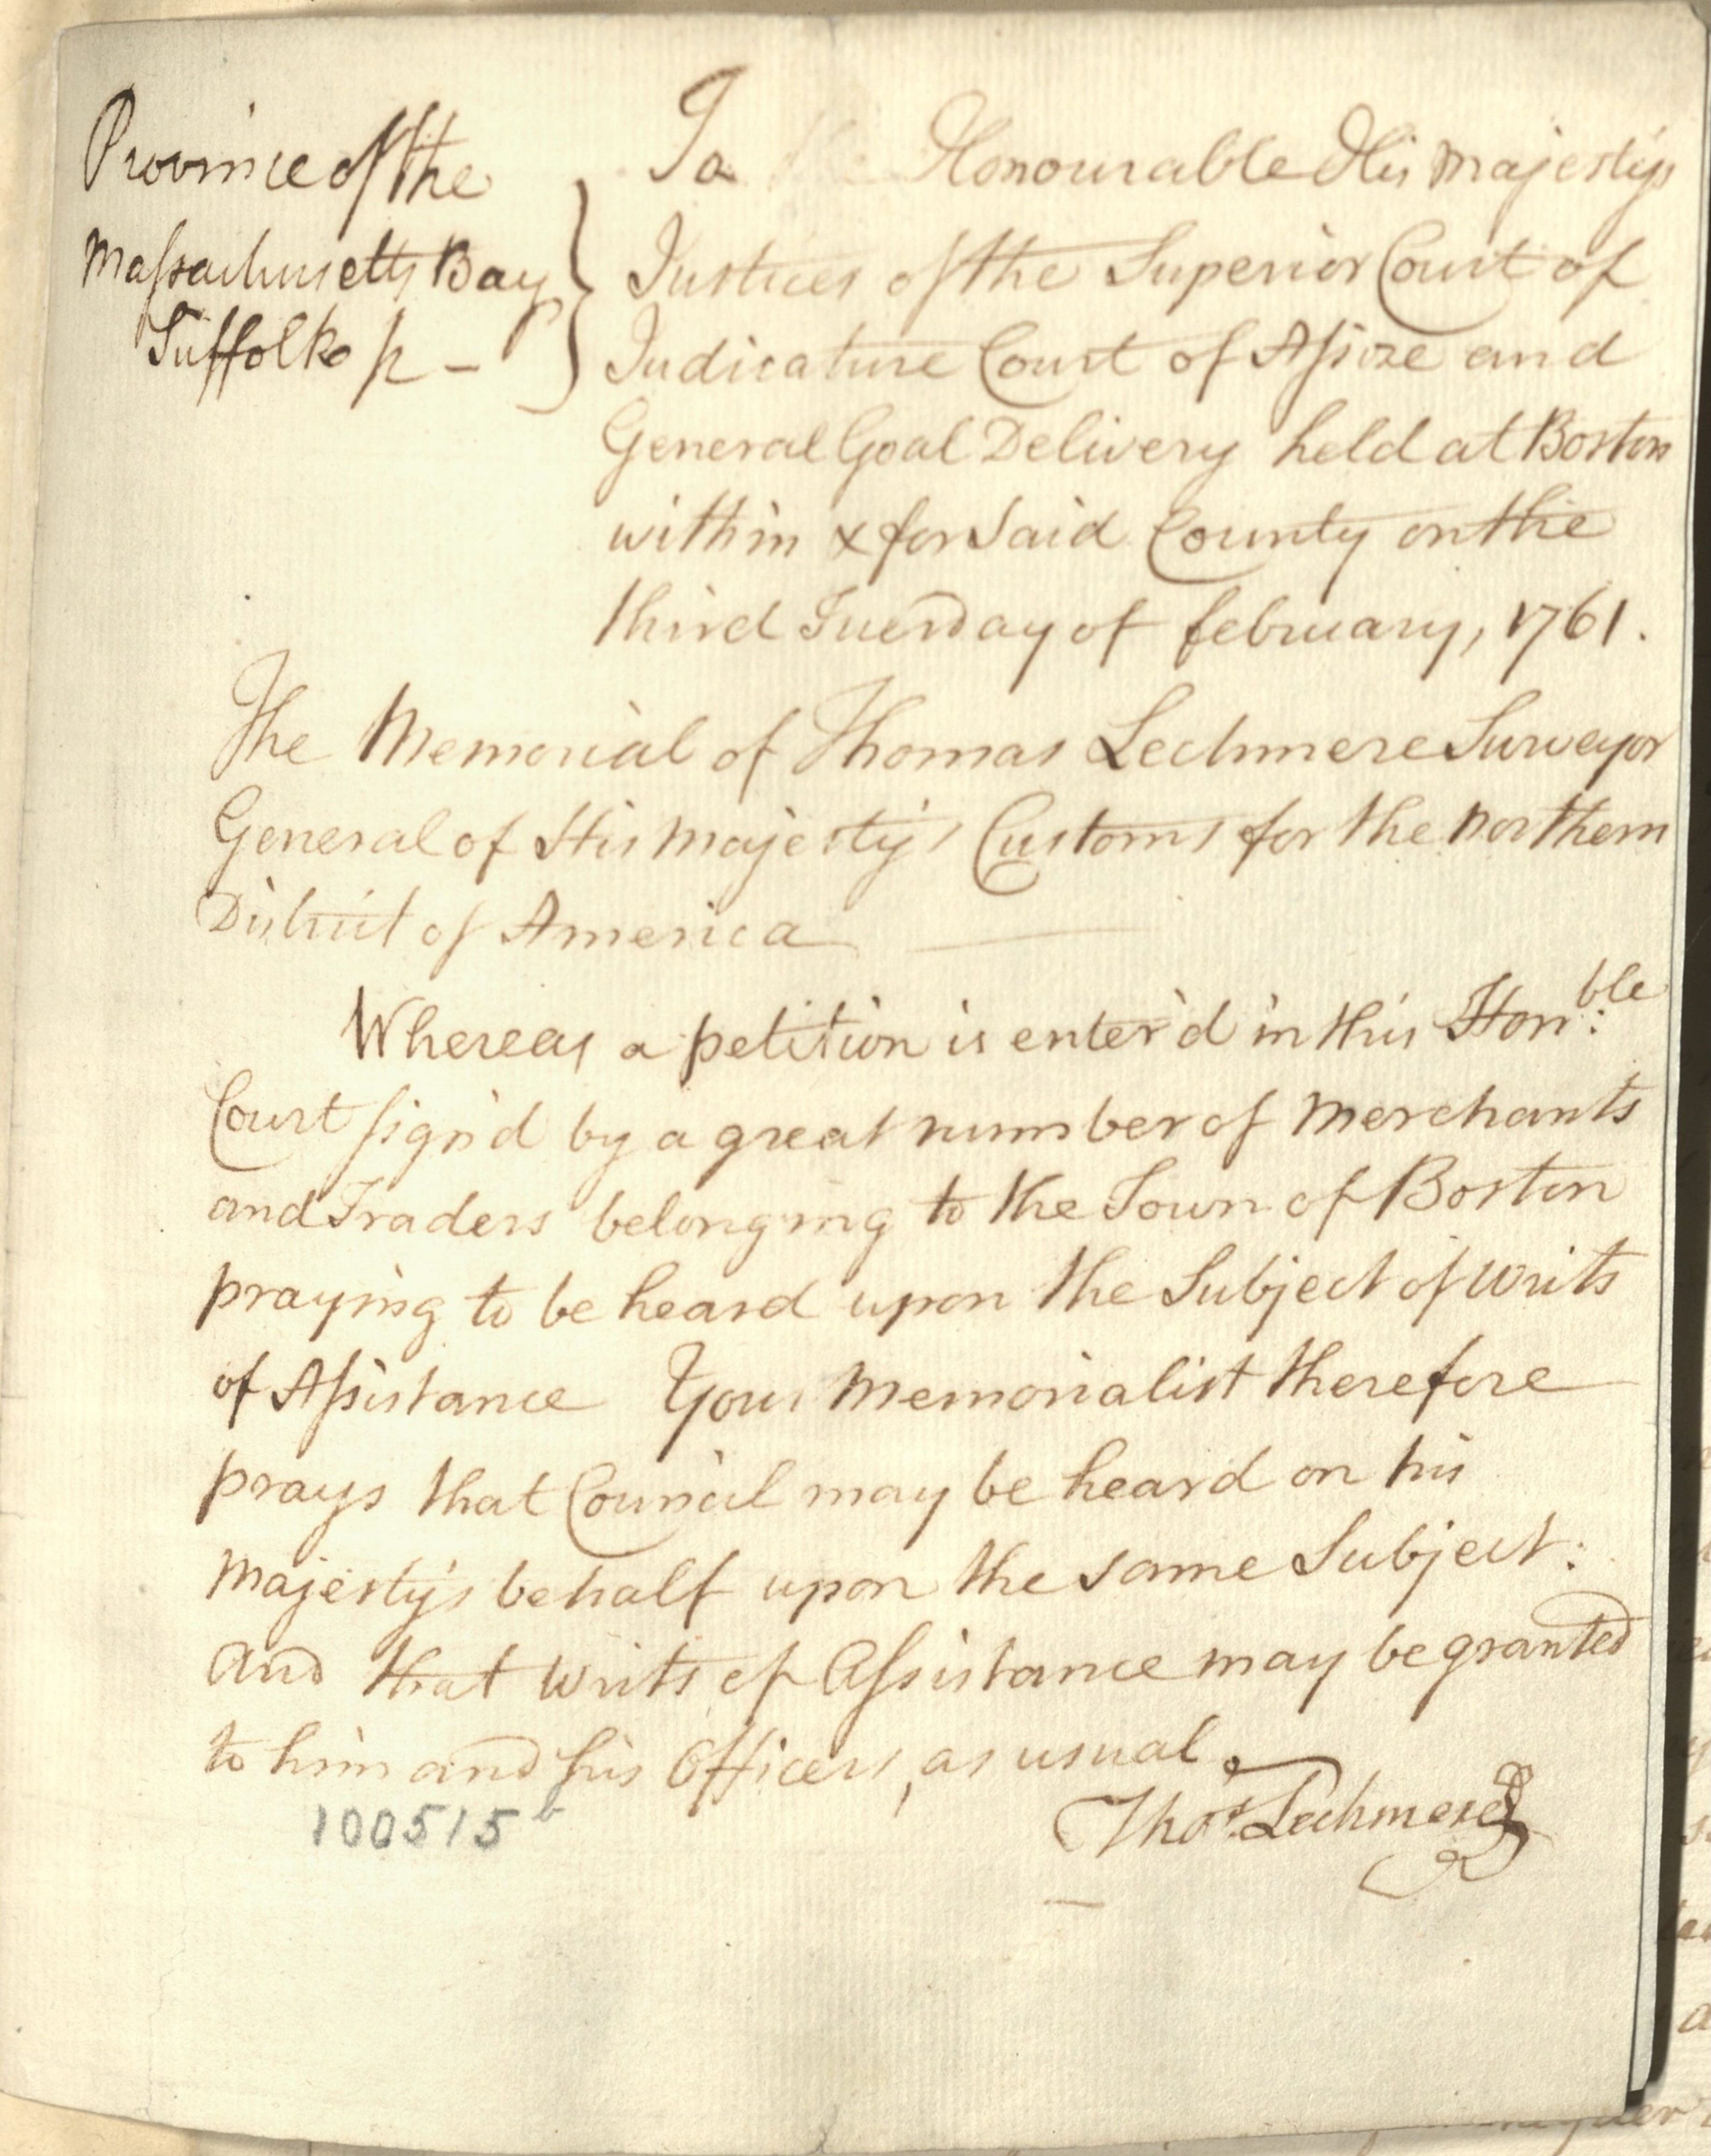 Province of the
Massachusetts Bay
Suffolk ss –
To the Honourable His Majestys
Justices of the Superior Court of
Judicature Court of Assize and
General Goal Delivery held at Boston
within & for Said County on the
third Tuesday of february, 1761.
The Memorial of Thomas Lechmere Surveyor
General of His Majesty's Customs for the Northern
District of America
Whereas a petition is enter'd in this Hon:ble
Court sign'd by a great number of Merchants
and Traders belonging to the Town of Boston
praying to be heard upon the Subject of Writs
of Assistance Your Memorialist therefore
prays that Council may be heard on his
Majesty's behalf upon the same Subject:
And that Writs of Assistance may be granted
to him and his Officers, as usual.
Thos. Lechmere
100515b